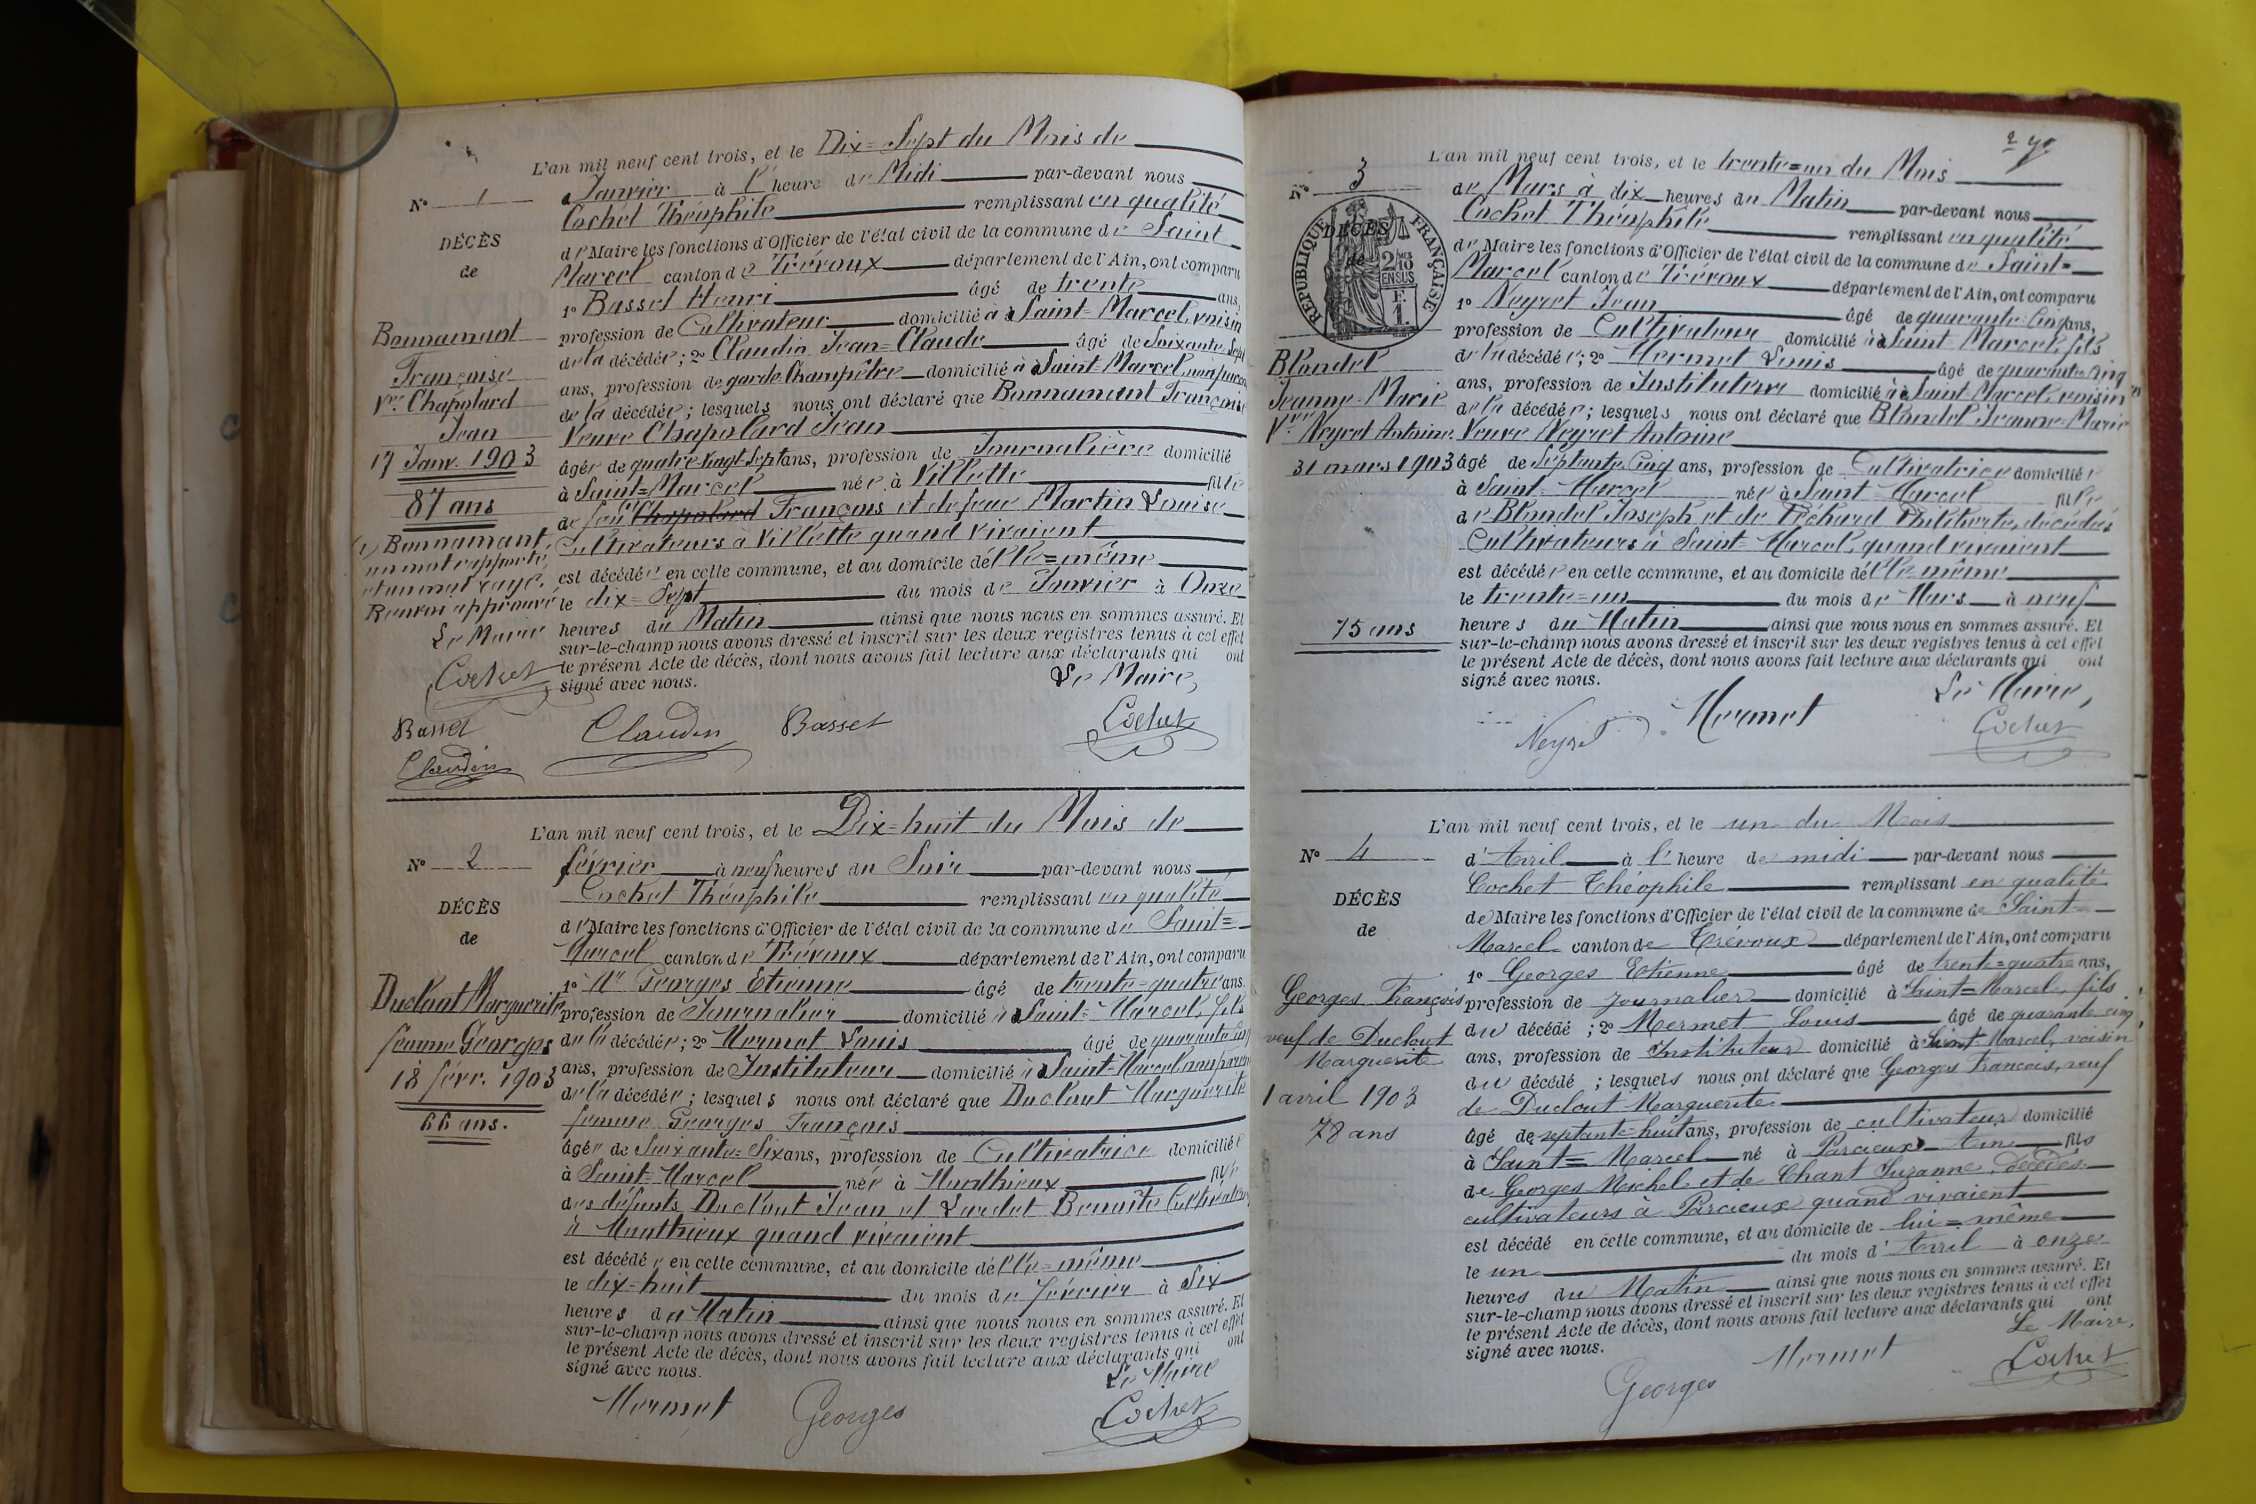 L'an mil neuf cent trois, et le Dix=Sept du Mois de
N° 1
Janvier à l'heure de Midi par-devant nous
Cochet Théophile remplissant en qualité
DÉCÈS
de Maire les fonctions d'Officier de l'état civil de la commune de Saint
de
Marcel canton de Trévoux département de l'Ain, ont comparu
1° Basset Henri âgé de trente ans,
Bonnamant
profession de Cultivateur domicilié à Saint=Marcel, voisin
Françoise
de la décédée; 2° Claudin Jean=Claude âgé de Soixante Sept
Vve Chapolard
ans, profession de garde Champêtre domicilié à Saint=Marcel, non parent
Jean
de la décédée; lesquels nous ont déclaré que Bonnamant Françoise
Veuve Chapolard Jean
17 Janv. 1903
âgée de quatre vingt Sept ans, profession de Journalière domicilié
à Saint=Marcel née à Villette fille
87 ans
de feu Chapolard François et de feue Martin Louise
(1) Bonnamant
Cultivateurs à Villette quand vivaient
un mot rapporté,
est décédée en cette commune, et au domicile d'elle=même
et un mot rayé.
le dix=Sept du mois de Janvier à Onze
Renvoi approuvé
heures du Matin ainsi que nous nous en sommes assuré. Et
Le Maire
sur-le-champ nous avons dressé et inscrit sur les deux registres tenus à cet effet
le présent Acte de décès, dont nous avons fait lecture aux déclarants qui ont
Cochet
signé avec nous. Le Maire,
Basset Claudin Basset Cochet
Claudin
L'an mil neuf cent trois, et le Dix=huit du Mois de
N° 2
février à neuf heures du Soir par-devant nous
Cochet Théophile remplissant en qualité
DÉCÈS
de Maire les fonctions d'Officier de l'état civil de la commune de Saint=
de
Marcel canton de Trévoux département de l'Ain, ont comparu
1° Georges Etienne âgé de trente=quatre ans
Duclout Marguerite
profession de Journalier domicilié à Saint=Marcel, fils
femme Georges
de la décédée; 2° Mermet Louis âgé de quarante cinq
18 févr. 1903
ans, profession de Instituteur domicilié à Saint=Marcel, non parent
de la décédée; lesquels nous ont déclaré que Duclout Marguerite
66 ans.
femme Georges François
âgée de Soixante=Six ans, profession de Cultivatrice domiciliée
à Saint=Marcel née à Monthieux fille
des défunts Duclout Jean et Lardet Benoîte Cultivateurs
à Monthieux quand vivaient
est décédée en cette commune, et au domicile d'elle=même
le dix=huit du mois de février à Six
heures du Matin ainsi que nous nous en sommes assuré. Et
sur-le-champ nous avons dressé et inscrit sur les deux registres tenus à cet effet
le présent Acte de décès, dont nous avons fait lecture aux déclarants qui ont
signé avec nous. Le Maire
Mermet Georges Cochet
L'an mil neuf cent trois, et le trente=un du Mois
N° 3
de Mars à dix heures du Matin par-devant nous
Cochet Théophile remplissant en qualité
RÉPUBLIQUE FRANÇAISE
DÉCÈS
de
de Maire les fonctions d'Officier de l'état civil de la commune de Saint=
Marcel canton de Trévoux département de l'Ain, ont comparu
1° Neyret Jean âgé de quarante Cinq ans,
profession de Cultivateur domicilié à Saint=Marcel, fils
Blondel
de la décédée; 2° Mermet Louis âgé de quarante cinq
Jeanne-Marie
ans, profession de Instituteur domicilié à Saint Marcel, voisin
de la décédée; lesquels nous ont déclaré que Blondel Jeanne=Marie
Vve Neyret Antoine.
Veuve Neyret Antoine
31 mars 1903
âgé de Septante Cinq ans, profession de Cultivatrice domiciliée
à Saint=Marcel née à Saint=Marcel fille
de Blondel Joseph et de Péchard Philiberte, décédés
Cultivateurs à Saint=Marcel, quand vivaient
est décédée en cette commune, et au domicile d'elle=même
le trente=un du mois de Mars à neuf
75 ans
heures du Matin ainsi que nous nous en sommes assuré. Et
sur-le-champ nous avons dressé et inscrit sur les deux registres tenus à cet effet
le présent Acte de décès, dont nous avons fait lecture aux déclarants qui ont
signé avec nous. Le Maire,
Neyret Mermet Cochet
L'an mil neuf cent trois, et le un du Mois
N° 4
d'Avril à l'heure de midi par-devant nous
Cochet Théophile remplissant en qualité
DÉCÈS
de Maire les fonctions d'Officier de l'état civil de la commune de Saint=
de
Marcel canton de Trévoux département de l'Ain, ont comparu
1° Georges Etienne âgé de trente=quatre ans,
Georges François
profession de Journalier domicilié à Saint=Marcel, fils
veuf de Duclout
du décédé; 2° Mermet Louis âgé de quarante cinq
Marguerite
ans, profession de Instituteur domicilié à Saint Marcel, voisin
du décédé; lesquels nous ont déclaré que Georges François, veuf
1 avril 1903
de Duclout Marguerite
78 ans
âgé de septante=huit ans, profession de cultivateur domicilié
à Saint=Marcel né à Parcieux Ain fils
de Georges Michel et de Chant Suzanne, décédés
cultivateurs à Parcieux quand vivaient
est décédé en cette commune, et au domicile de lui=même
le un du mois d'Avril à onze
heures du Matin ainsi que nous nous en sommes assuré. Et
sur-le-champ nous avons dressé et inscrit sur les deux registres tenus à cet effet
le présent Acte de décès, dont nous avons fait lecture aux déclarants qui ont
signé avec nous. Le Maire,
Georges Mermet Cochet